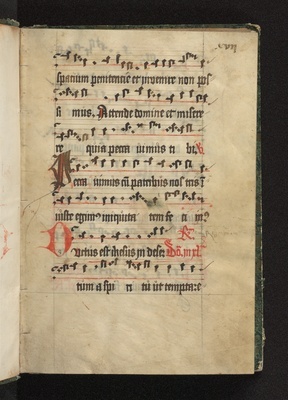 spatium penitentie et invenire non pos
si mus. Attende domine et misere
re quia pecca uimus ti bi. ℣.
Pecca uimus cū patribus nos tris ī
iuste egim⁹ iniquita tem fe ci m⁹
℟.
Ductus est ihesus in deser Dō. in xl.
tum a spi ri tu ut temptare